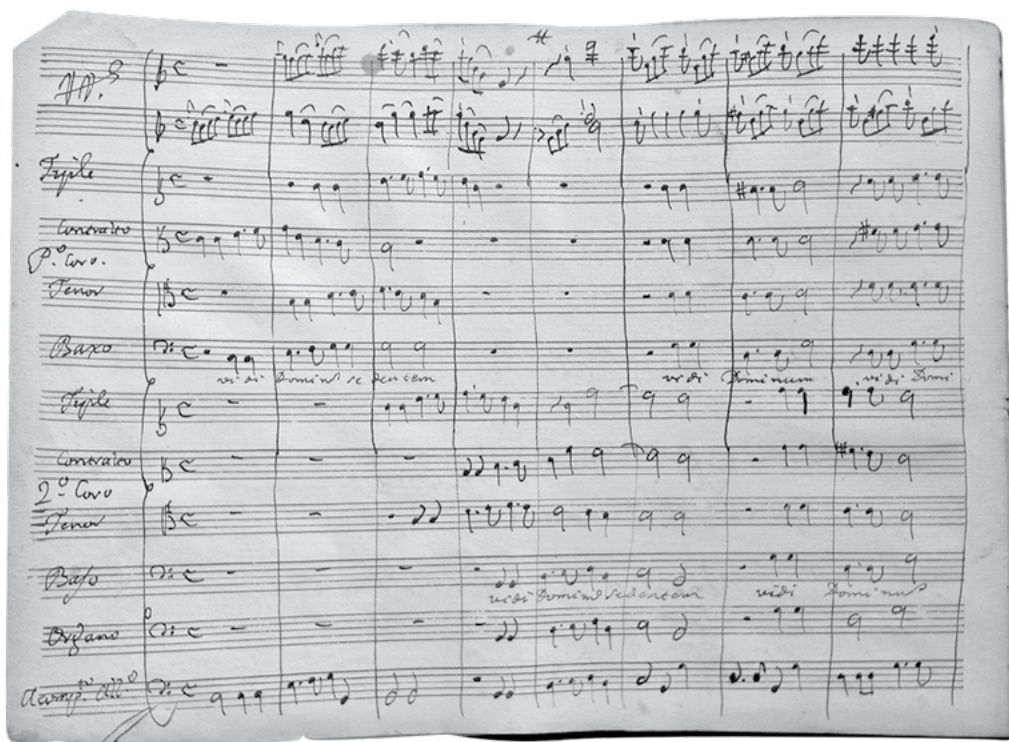 VV.s
Tiple
Contralto
P.º Coro.
Tenor
Baxo
vidi Dominũ sedentem vidi Dominum vidi Domi
Tiple
Contralto
2.º Coro
Tenor
Baxo
vidi Dominũ sedentem vidi Dominũ
Organo
Acomp.to All.º